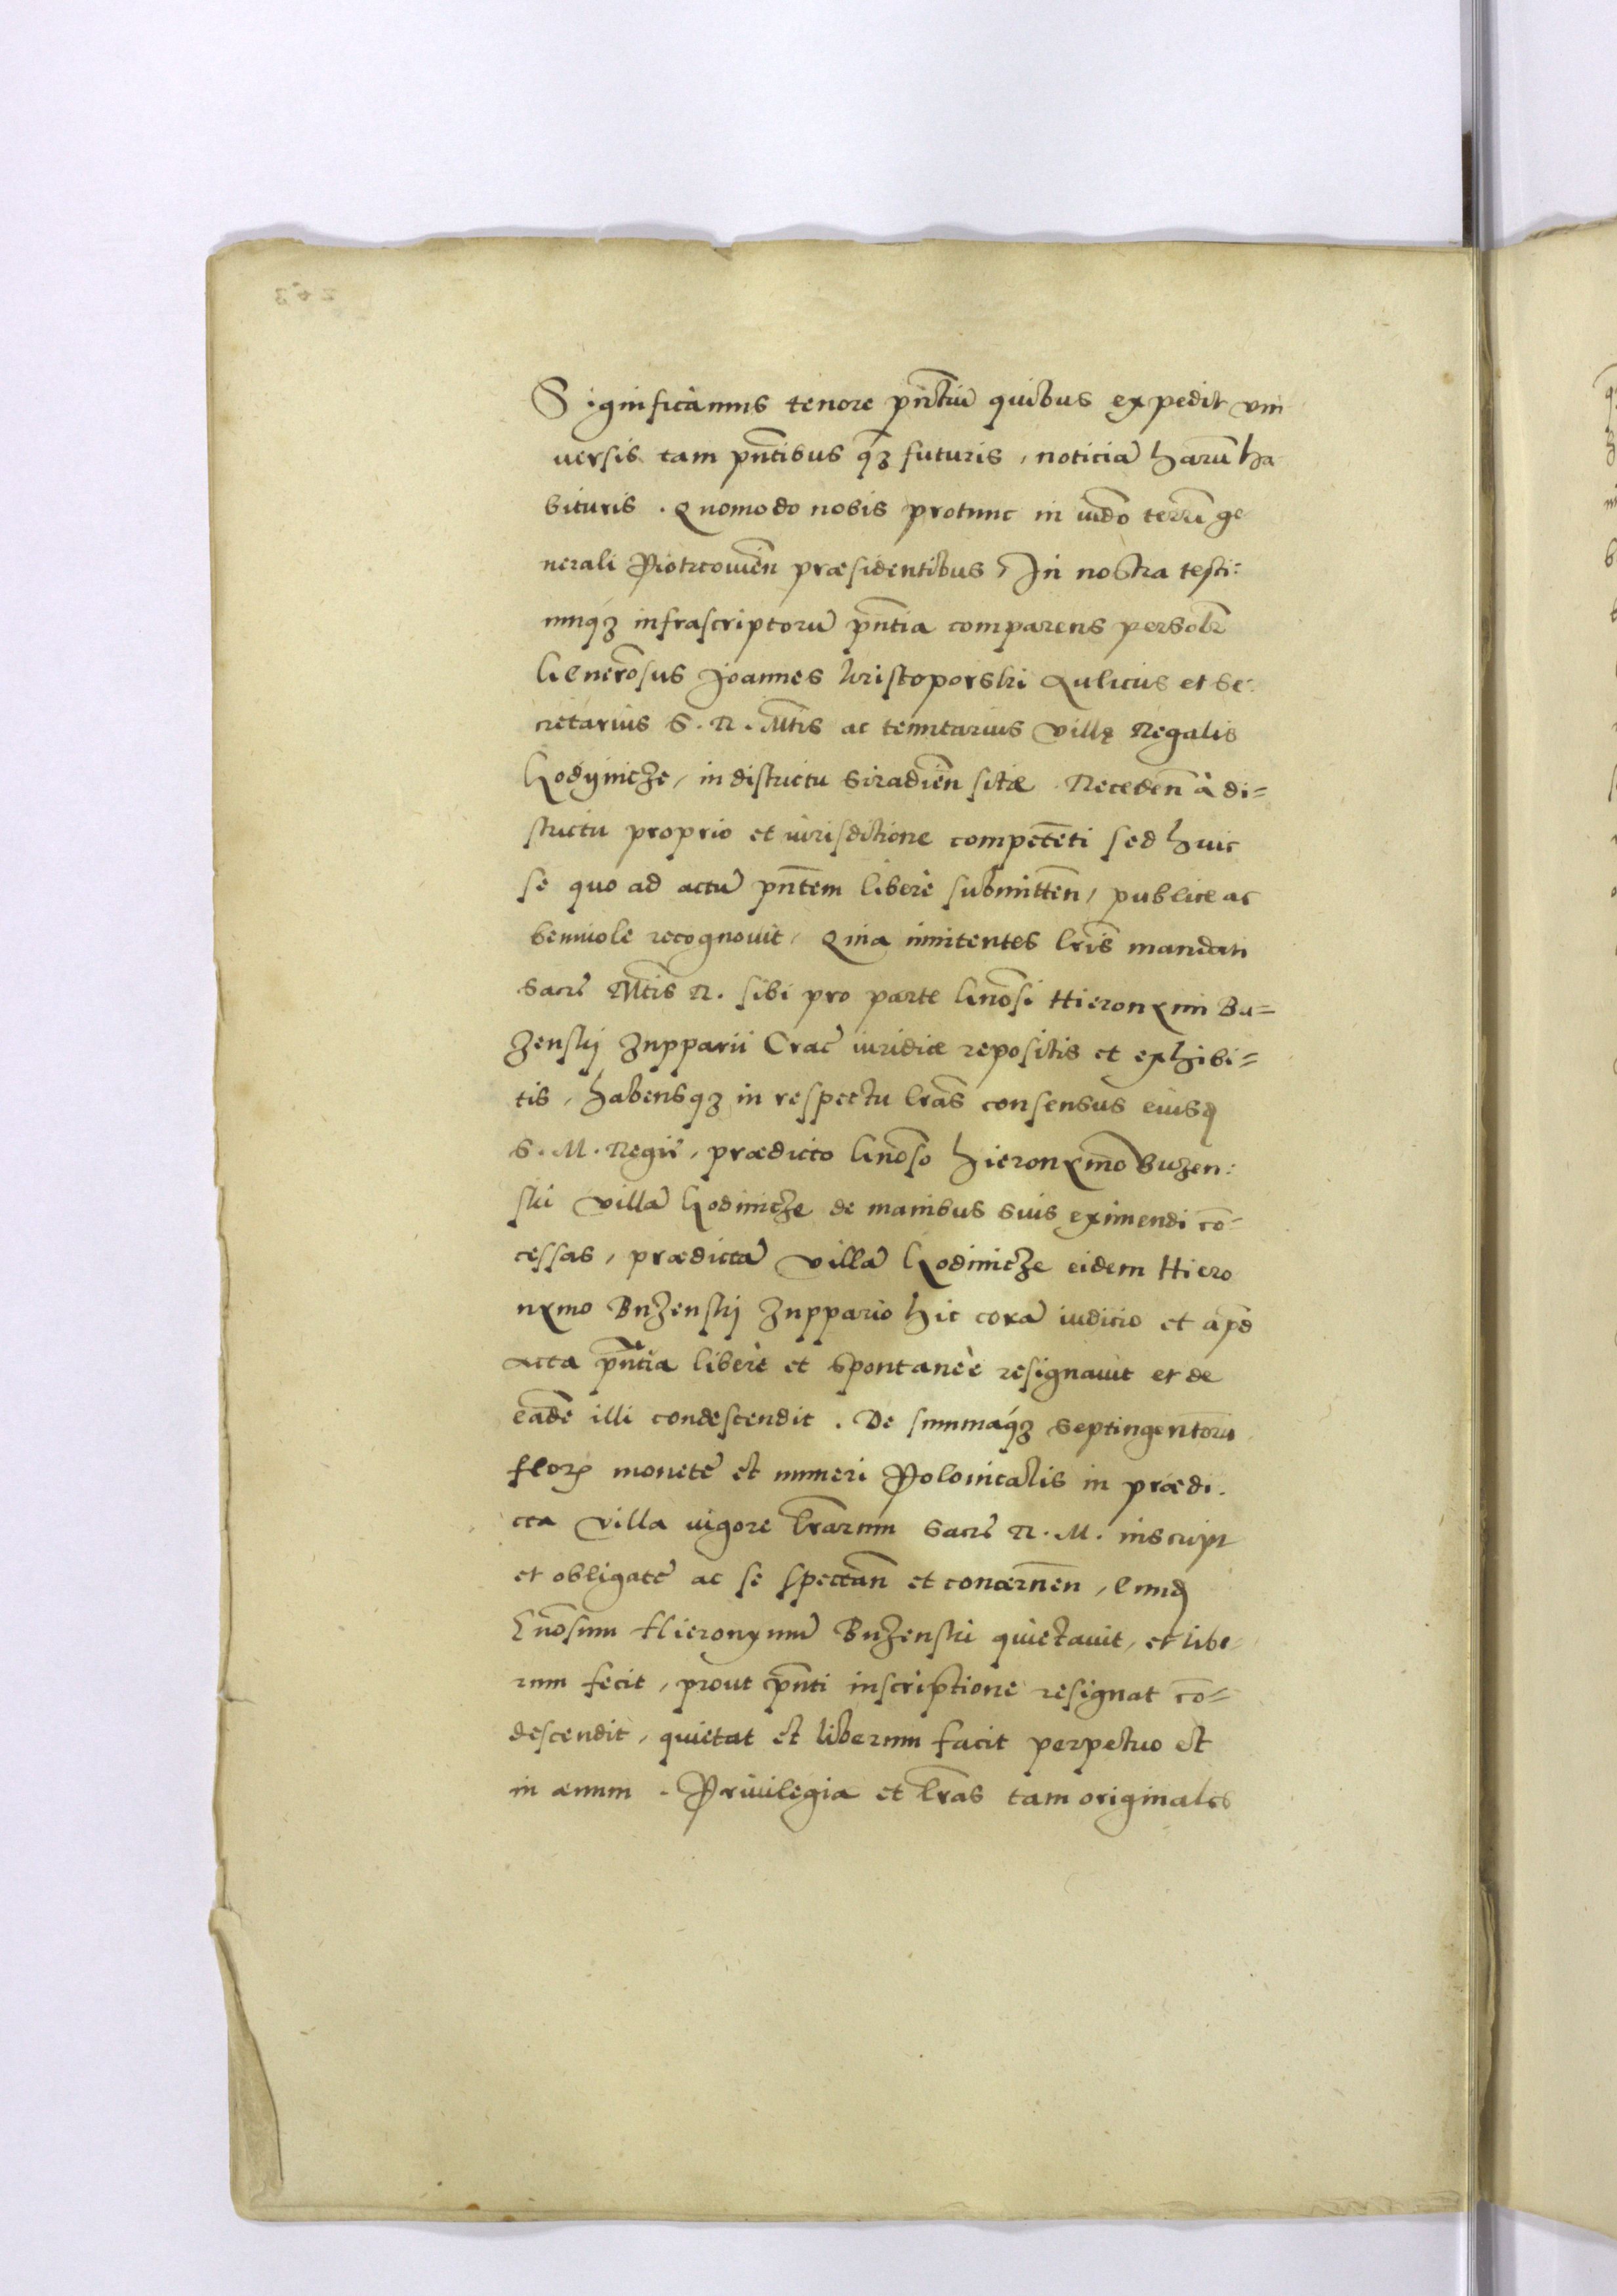 Significamus tenore pñtiũ quibus expedit vni
uersis tam pñtibus qʒ futuris, noticiã harũ ha
bituris. Quomodo nobis protunc in iudõ terrũ ge
nerali Piotrcouieñ præsidentibus, In nostra testi:
umqʒ infrascriptorũ pñtia comparens persolr̃
Generõsus Joannes Kristoporski Aulicus et Se:
cretarius S. R. Mtis ac tenutarius villę Regalis
Godynicze, in districtu Siradieñ sitæ. Recedeñ à di=
strictu proprio et iurisdictione competẽti sed huic
se quo ad actũ pñtem liberè submitteñ, publice ac
beniuole recognouit, Quia innitentes lr̃is mandati
Sacræ Mtis R. sibi pro parte Gnõsi Hieronymi Bu=
zenskj Zupparii Crac̃ iuridice repositis et exhibi=
tis, habensqʒ in respectu lr̃as consensus eiusd
S. M. Regiæ, prædicto Gnõso Hieronymo Buzen:
ski villã Godinicze de manibus suis eximendi cõ=
cessas, prædictã villã Godinicze eidem Hiero
nymo Buzenskj Zuppario hic corã iudicio et apd
acta pñtia liberè et spontaneè resignauit et de
eadẽ illi condescendit. De summaqʒ septingentorũ
flor monete et numeri Polonicalis in prædi.
cta villa uigore lr̃arum Sacræ R. M. inscript
et obligate ac se spectañ et concerneñ, eund
Gnõsum Hieronymũ Buzenski quietauit, et libe
rum fecit, prout pñti inscriptione resignat cõ=
descendit, quietat et liberum facit perpetuo et
in æuum. Priuilegia et lr̃as tam originales